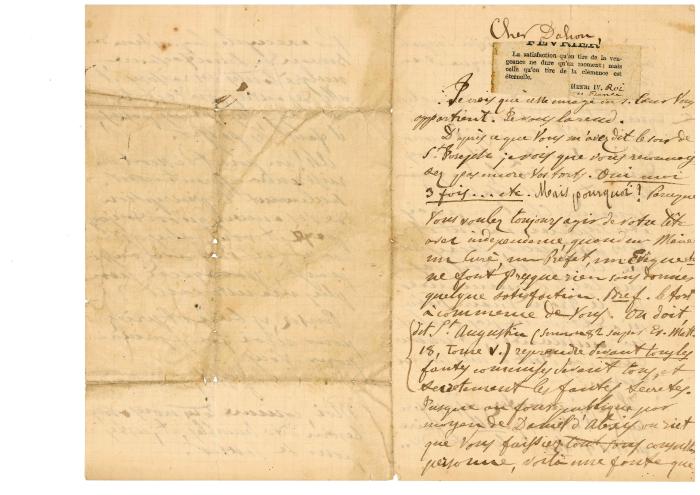 Cher Dahon,
FÉVRIER
La satisfaction qu'on tire de la ven-
geance ne dure qu'un moment: mais
celle qu'on tire de la clémence est
éternelle.
HENRI IV, Roi
de France
Je crois que cette image du S. Cœur Vous
appartient. Je vous la rend.
D'après ce que Vous m'avez dit le soir de
St Joseph je vois que vous reconnais
sez pas encore Vos torts. Oui moi
3 fois... etc. Mais pourquoi? Parceque
Vous voulez toujours agir de votre tête
avec indépendance quand un Maire
un Curé, un Préfet, un Evêque
ne font presque rien sans donner
quelque satisfaction. Bref. le tort
a commencé de Vous. On doit
dit St Augustin (Sermon 82 super Ev. Matt.
18, Tome V.) reprendre devant tous les
fautes commises devant tous, et
secrètement les fautes secrètes.
Puisque on
moyen de Daniel d'Alexis on
que Vous faissiez tout sans consulter
personne, voilà une faute que